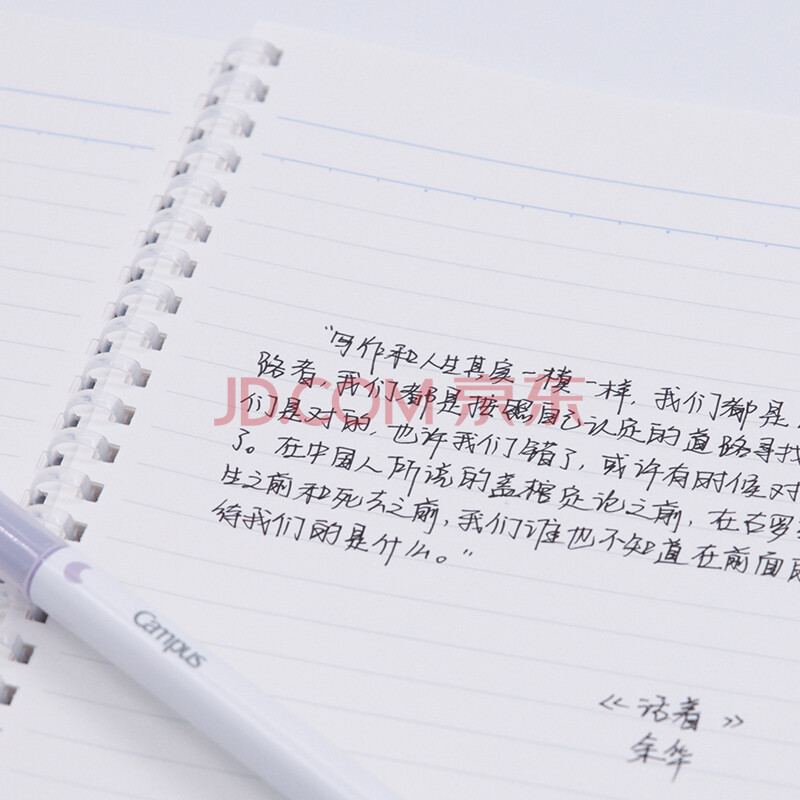 “写作和人生其实一模一样，我们都是
路者，我们都是按照自己认定的道路寻找
们是对的，也许我们错了，或许有时候对
了。在中国人所说的盖棺定论之前，在古罗
生之前和死去之前，我们谁也不知道在前面
待我们的是什么。”
《活着》
余华
Campus
JD.COM 京东